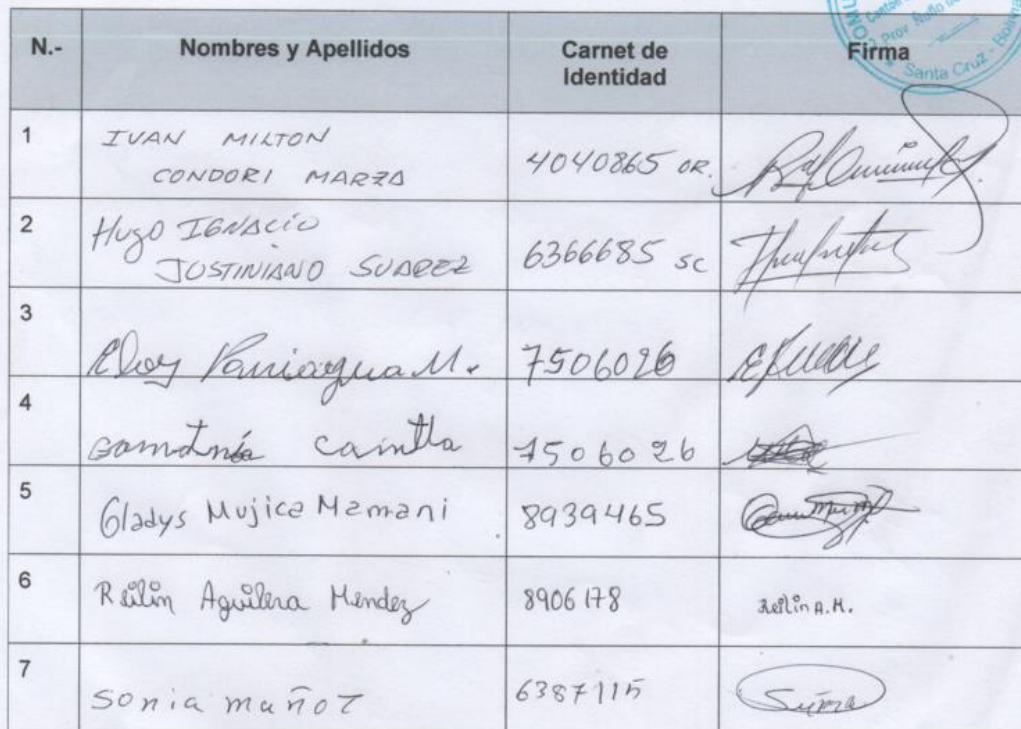 COMU
Prov. Ñuflo de
Santa Cruz - Bolivia
N.- Nombres y Apellidos Carnet de Identidad Firma
1 IVAN MILTON
CONDORI MARZA 4040865 OR.
2 Hugo IGNACIO
JUSTINIANO SUAREZ 6366685 SC
3 Eloy Paniagua M. 7506026
4 7506026
5 Gladys Mujica Mamani 8939465
6 Reilin Aguilera Mendez 8906178 Reilin A.M.
7 Sonia muñoz 6387115